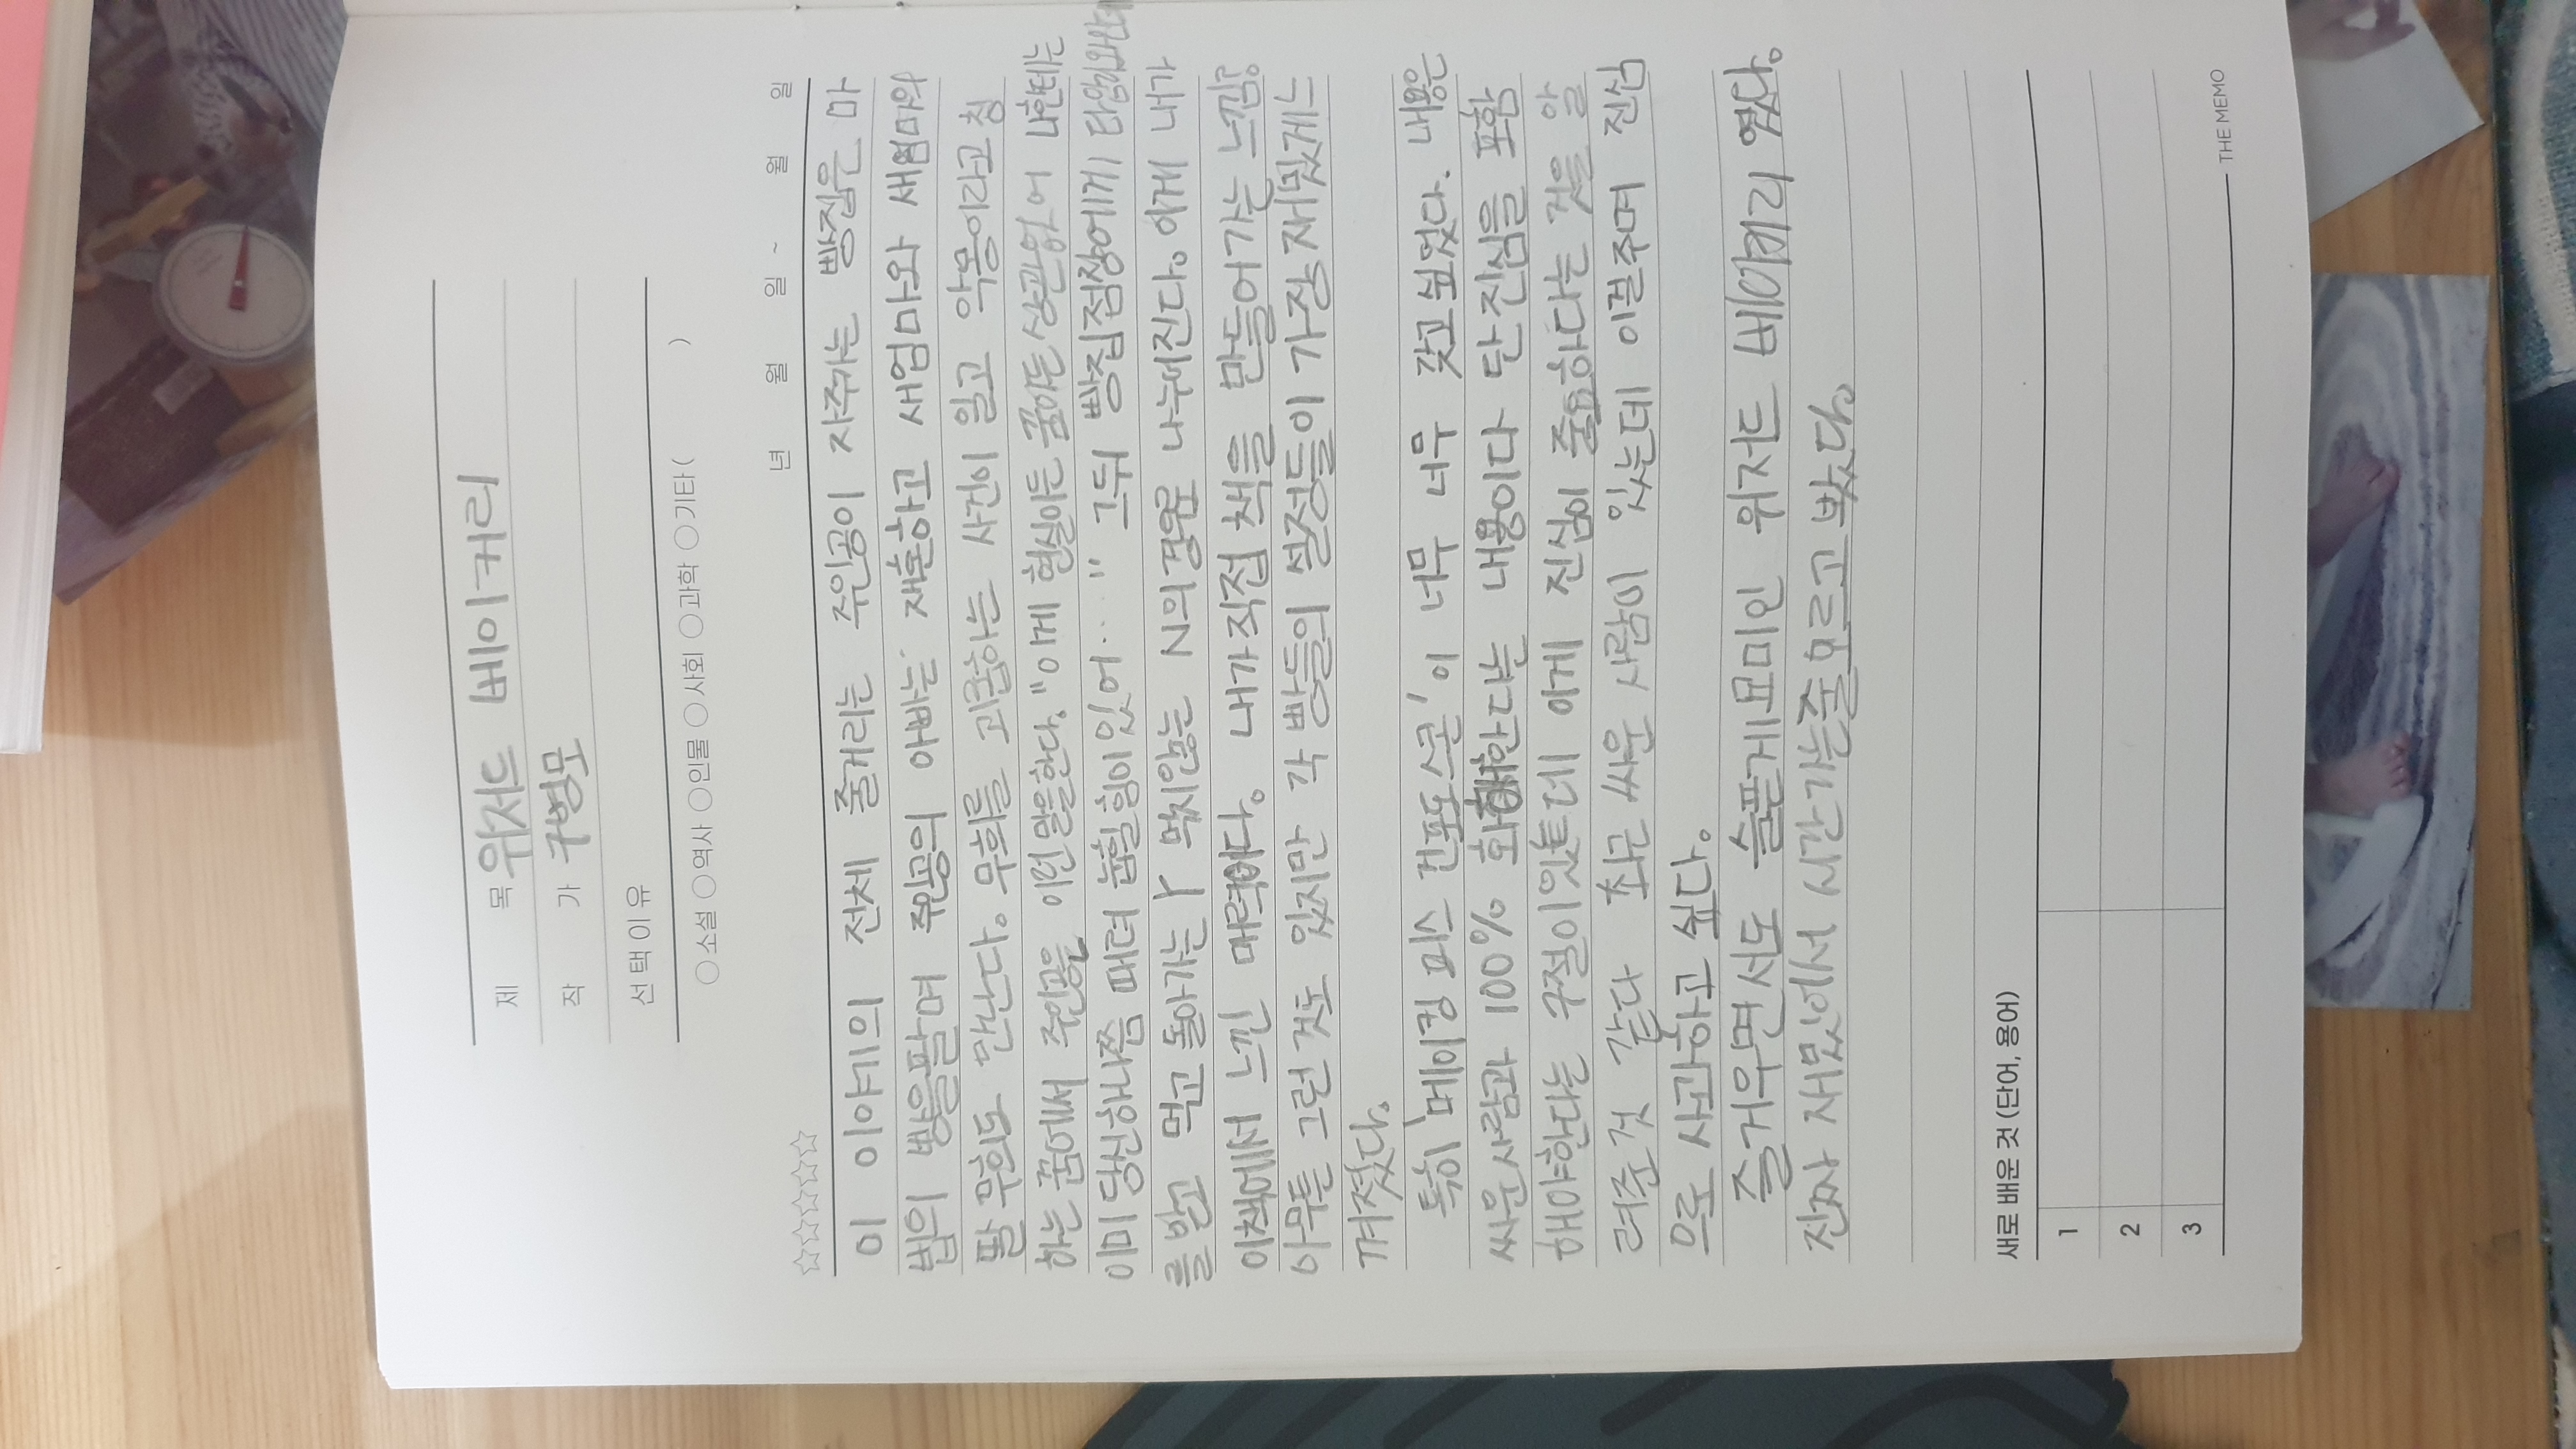 제 목 위저드 베이커리
작 가 구병모
선택이유
○소설 ○역사 ○인물 ○사회 ○과학 ○기타( )
년 월 일 ~ 월 일
☆☆☆☆☆
이 이야기의 전체 줄거리는 주인공이 자주가는 빵집은 마
법의 빵을팔며 주인공의 아빠는 재혼하고 새엄마와 새엄마의
딸 무희도 만난다. 무희를 괴롭하는 사건이 일고 악몽이라고 칭
하는 꿈에서 주인공은 이런 말을한다. "이게 현실이든 꿈이든 상관없어 나한테는
이미 당신하나쯤 때려 눕힐 힘이 있어…" 그뒤 빵집점장에게 타임리와인더
를 받고 먹고 돌아가는 Y 먹지않는 N의 경우로 나누어진다. 이게 내가
이책에서 느낀 매력이다. 내가직접 책을 만들어가는 느낌?
아무튼 그런 것도 있지만 각 빵들의 설정들이 가장 재밌게느
껴졌다.
특히 '메이킹 피스 건포도스콘'이 너무 너무 갖고 싶었다. 내용은
싸운사람과 100% 화해한다는 내용이다 단 진심을 포함
해야한다는 구절이있는데 이게 진심이 중요하다는 것을 알
려준것 같다 최근 싸운 사람이 있는데 이걸주며 진심
으로 사과하고 싶다.
즐거우면서도 슬픈게묘미인 위저드 베이커리 였다.
진짜 재밌어서 시간가는줄모르고 봤다.
새로 배운 것 (단어, 용어)
1
2
3
THE MEMO